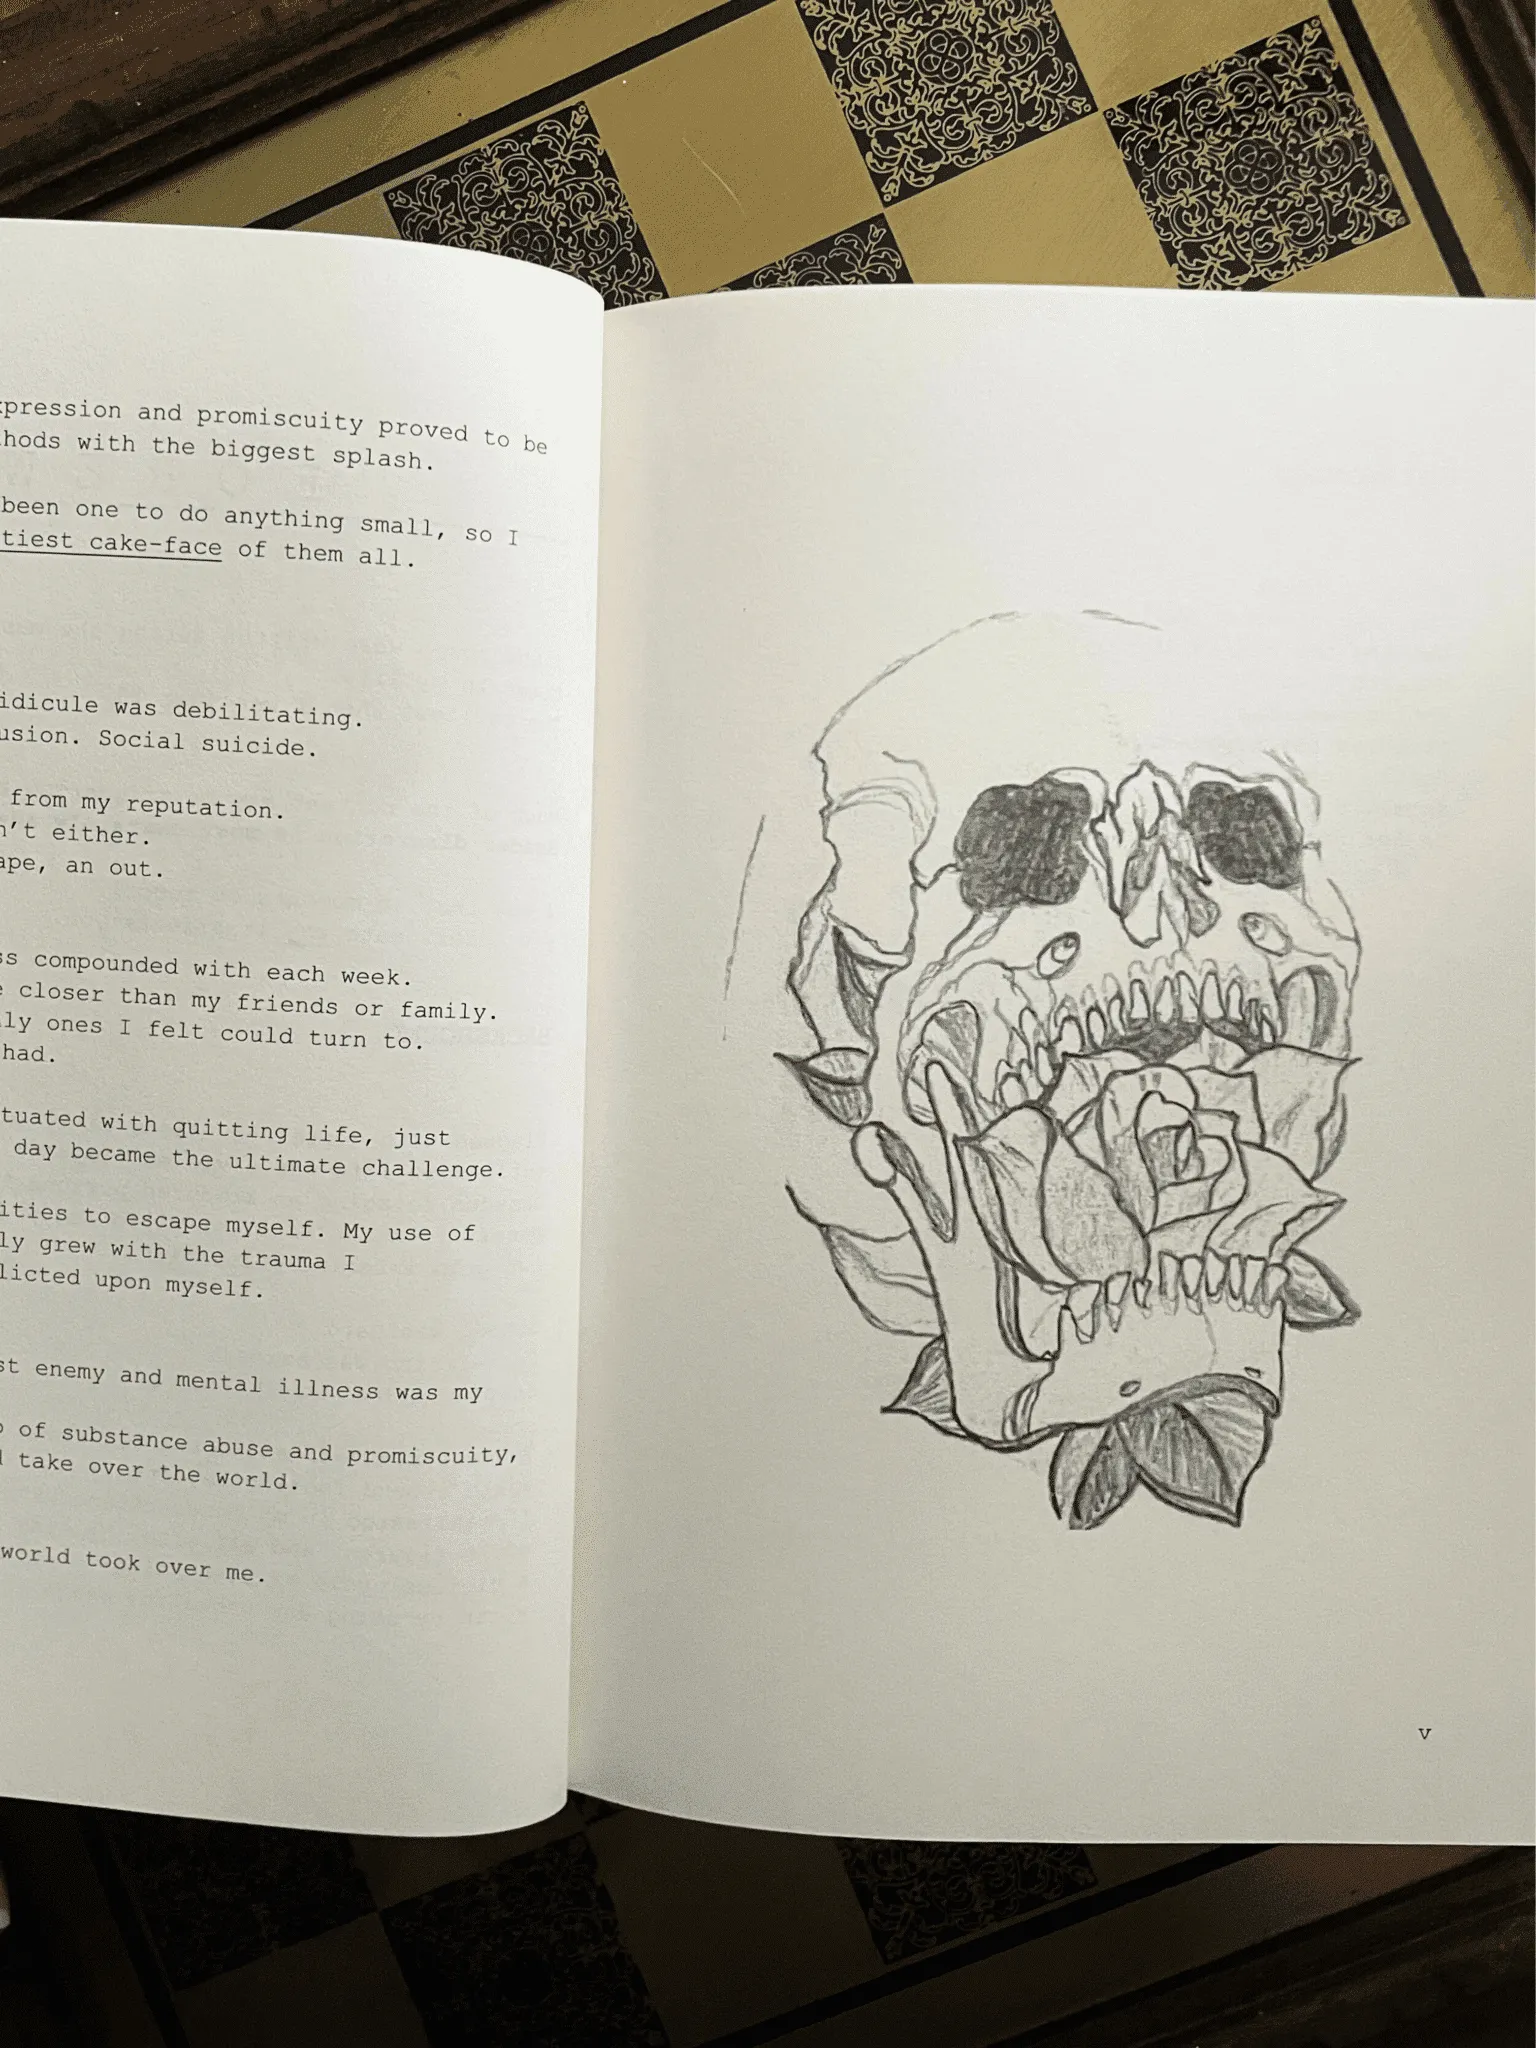 and promiscuity proved to be
with the biggest splash.
been one to do anything small, so I
cake-face of them all.
was debilitating.
Social suicide.
from my reputation.
either.
an out.
compounded with each week.
closer than my friends or family.
ones I felt could turn to.
had.
with quitting life, just
day became the ultimate challenge.
to escape myself. My use of
grew with the trauma I
upon myself.
enemy and mental illness was my
of substance abuse and promiscuity,
take over the world.
world took over me.
v